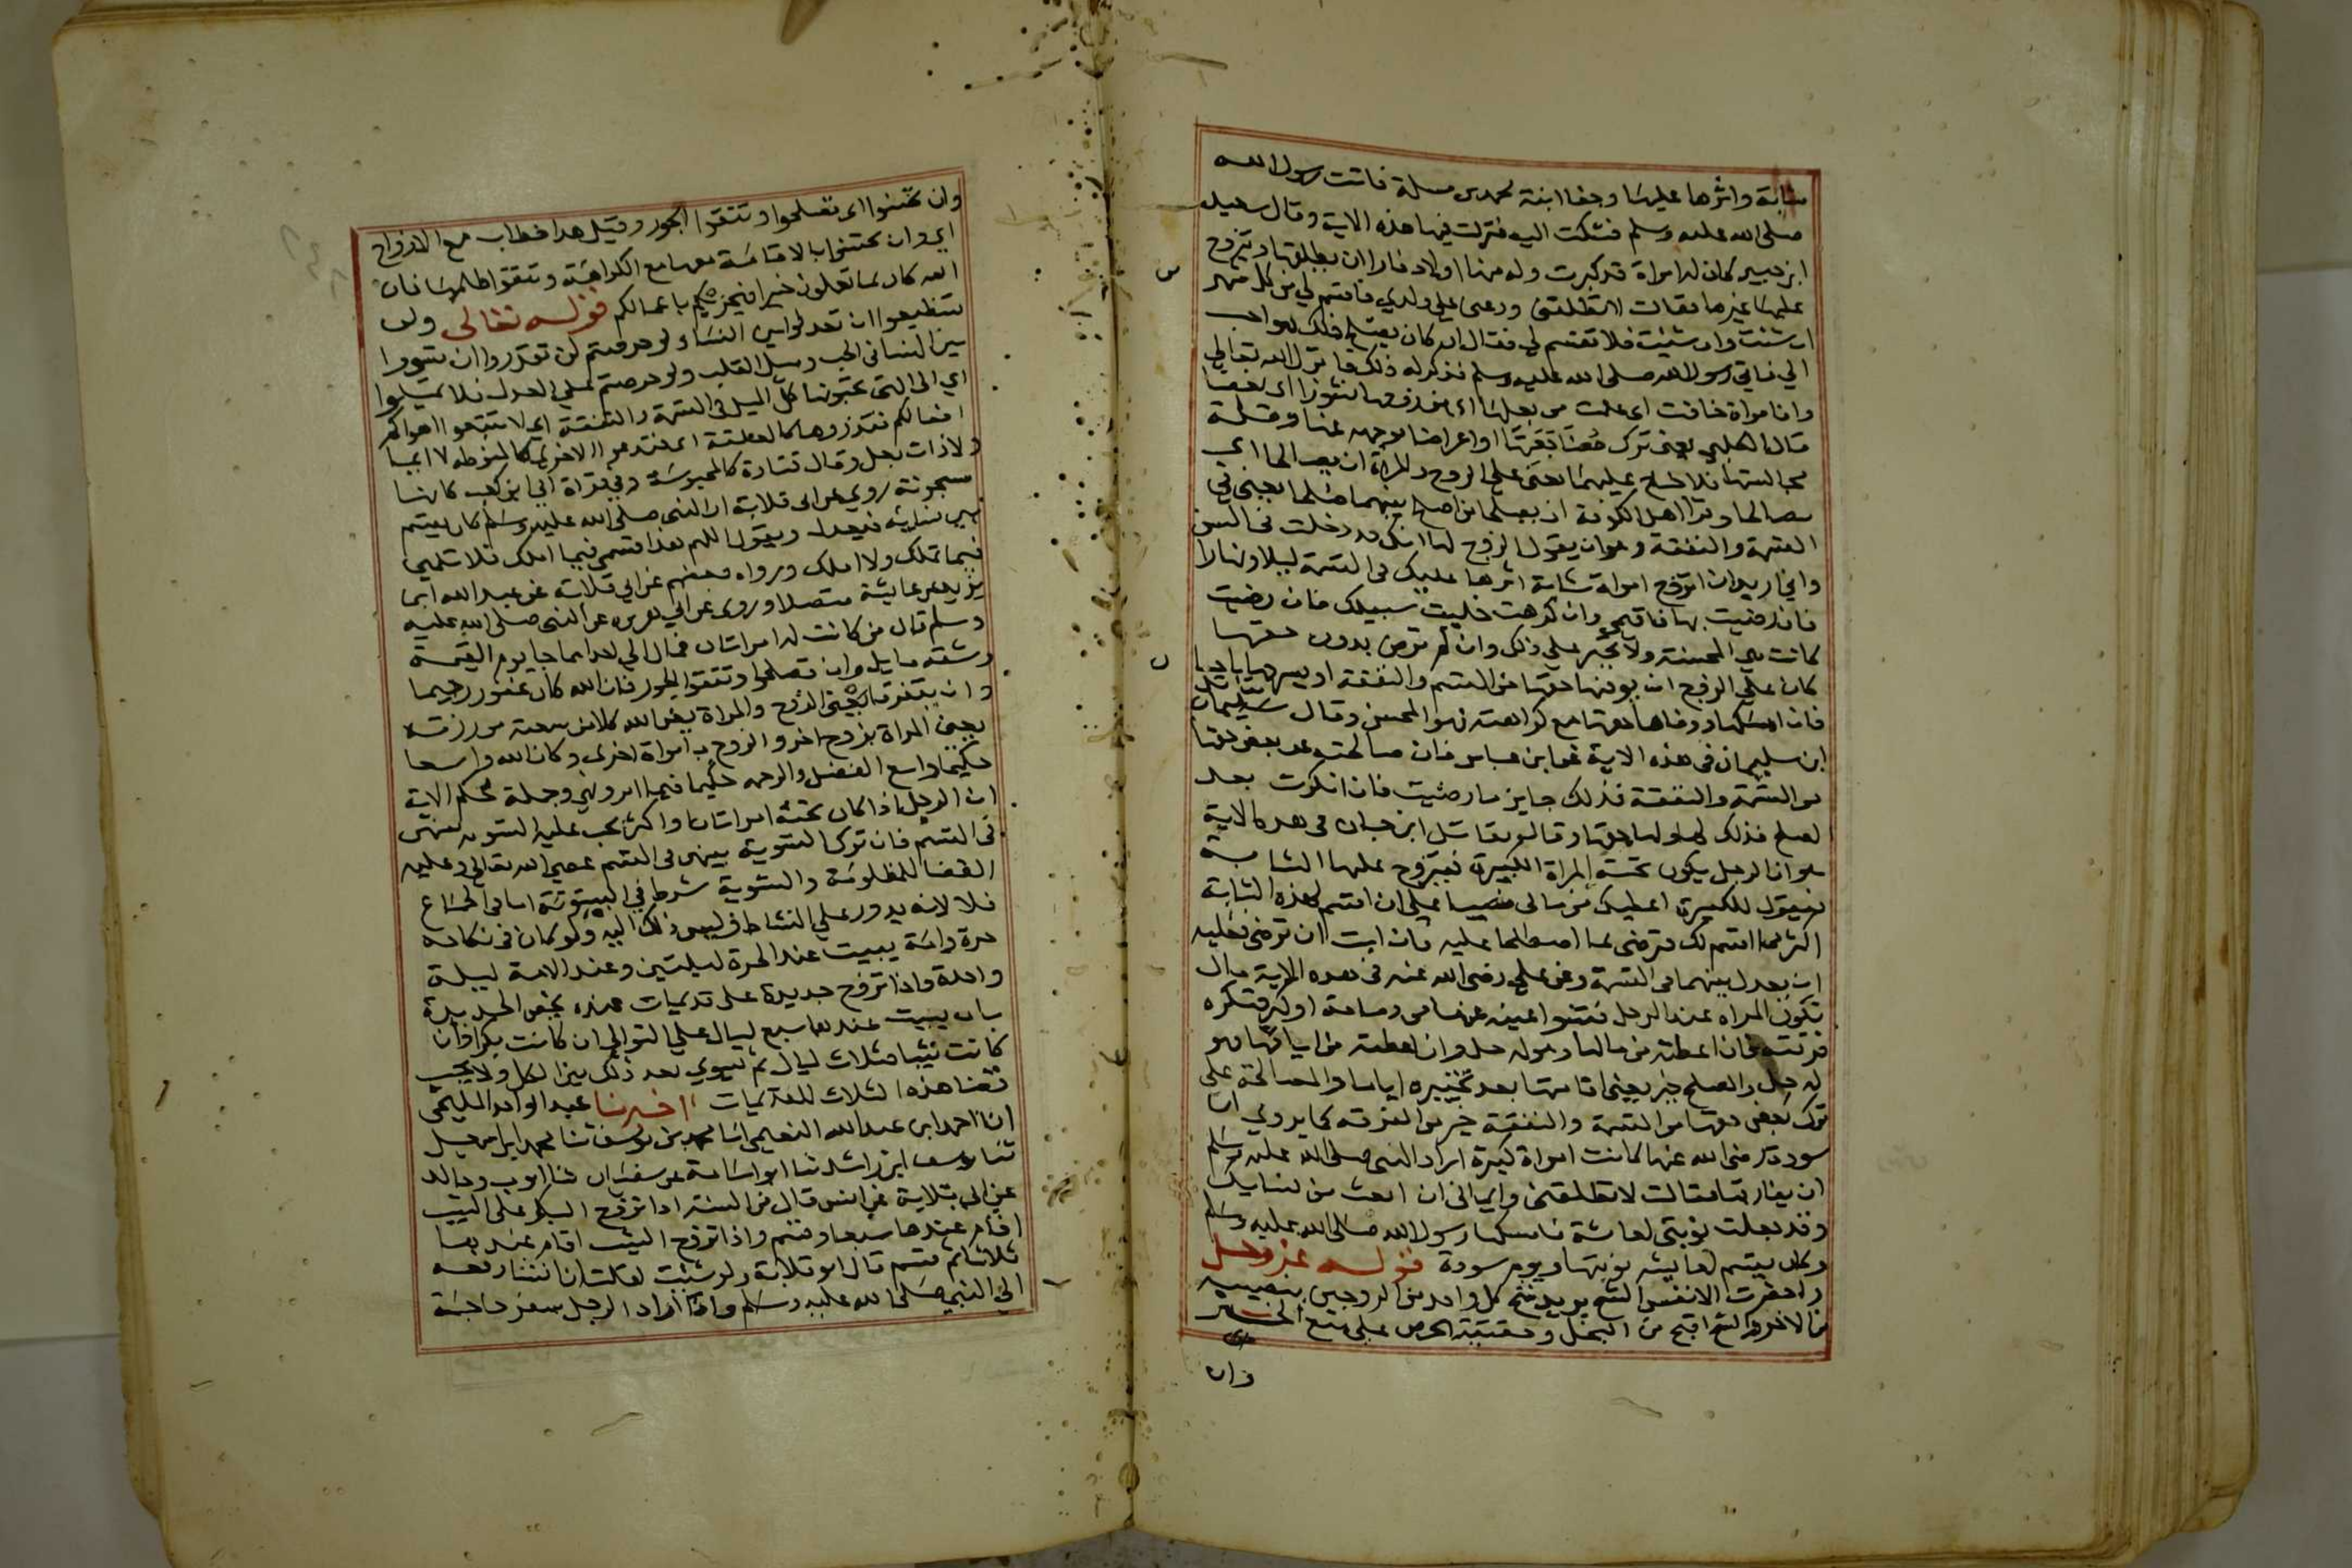 شابة واثرها عليها وجفا ابنة محمد بن مسلمة فاتت رسول الله
صلى الله عليه وسلم فشكت اليه فنزلت فيها هذه الاية وقال سعيد
ابن جبير كان له امراة قد كبرت وله منها اولاد فاراد ان يطلقها ويتزوج
عليها غيرها فقالت لا تطلقني ودعني على ولدي فاقسم لي من كل شهر
ان شئت وان شئت فلا تقسم لي فقال ان كان يصلح ذلك فهو احب
الي فاتى رسول الله صلى الله عليه وسلم فذكر له ذلك فانزل الله تعالى
وان امراة خافت اي علمت من بعلها اي من زوجها نشوزا اي بغضا
قال الكلبي يعني ترك مضاجعتها او اعراضا بوجهه عنها وقلة
مجالستها فلا جناح عليهما يعني على الزوج والمراة ان يصالحا اي
يصالحا وقرا اهل الكوفة ان يصلحا من اصلح بينهما صلحا يعني في
القسمة والنفقة وهو ان يقول الزوج لها انك قد دخلت في السن
واني اريد ان اتزوج امراة شابة اثرها عليك في القسمة ليلا ونهارا
فان رضيت بهذا فاقيمي وان كرهت خليت سبيلك فان رضيت
كانت هي المحسنة ولا تجبر على ذلك وان لم ترض بدون حقها
كان على الزوج ان يوفيها حقها من القسم والنفقة او يسرحها باحسان
فان امسكها ووفاها حقها مع كراهته فهو المحسن وقال سليمان
ابن سليمان في هذه الاية عن ابن عباس فان صالحته عن بعض حقها
من القسمة والنفقة فذلك جايز ما رضيت فان انكرت بعد
الصلح فذلك لها ولها حقها وقال مقاتل ابن حيان في هذه الاية
هو ان الرجل يكون تحته المراة الكبيرة فيتزوج عليها الشابة
فيقول للكبيرة اعطيك من مالي نصيبا على ان اقسم لهذه الشابة
اكثر مما اقسم لك فترضى بما اصطلحا عليه فان ابت ان ترضى فعليه
ان يعدل بينهما في القسمة وعن علي رضي الله عنه في هذه الاية قال
تكون المراة عند الرجل فتنبوا عينه عنها من دمامة او كبر فتكره
فرقته فان اعطته من مالها فهو له حل وان اعطته من ايامها فهو
له حل والصلح خير يعني اقامتها بعد تخييره اياها والمصالحة على
ترك بعض حقها من القسمة والنفقة خير من الفرقة كما يروى ان
سودة رضي الله عنها كانت امراة كبيرة اراد النبي صلى الله عليه وسلم
ان يفارقها فقالت لا تطلقني وانما لي ان ابعث من نسايك
وقد جعلت نوبتي لعايشة فامسكها رسول الله صلى الله عليه وسلم
وكان يقسم لعايشة نوبتها ويوم سودة قوله عز وجل
واحضرت الانفس الشح يريد شح كل واحد من الزوجين بنصيبه
من الاخر والشح اقبح من البخل وحقيقته الحرص على منع الخير
وان
وان تحسنوا اي تصلحوا وتتقوا الجور وقيل هذا خطاب مع الازواج
اي وان تحسنوا بالاقامة معها مع الكراهية وتتقوا ظلمها فان
الله كان بما تعملون خبيرا فيجزيكم باعمالكم قوله تعالى ولن
تستطيعوا ان تعدلوا بين النسا ولو حرصتم لن تقدروا ان تسووا
بين النسا في الحب وميل القلب ولو حرصتم على العدل فلا تميلوا
اي الى التي تحبونها كل الميل في القسمة والنفقة اي لا تتبعوا اهواكم
افعالكم فتذروها كالمعلقة اي فتدعوا الاخرى كالمنوطة لا ايما
ولا ذات بعل وقال قتادة كالمحبوسة وفي قراة ابي بن كعب كانها
مسجونة روي عن ابي قلابة ان النبي صلى الله عليه وسلم كان يقسم
بين نسايه فيعدل ويقول اللهم هذا قسمي فيما املك فلا تلمني
فيما تملك ولا املك ورواه بعضهم عن ابي قلابة عن عبد الله ابن
يزيد عن عايشة متصلا وروي عن ابي هريرة عن النبي صلى الله عليه
وسلم قال من كانت له امراتان فمال الى احداهما جا يوم القيمة
وشقه مايل وان تصلحوا وتتقوا الجور فان الله كان غفورا رحيما
وان يتفرقا يعني الزوج والمراة يغن الله كلا من سعته من رزقه
يعني المراة بزوج اخر والزوج بامراة اخرى وكان الله واسعا
حكيما واسع الفضل والرحمة حكيما فيما امر ونهى وجملة حكم الاية
ان الرجل اذا كان تحته امراتان او اكثر يجب عليه التسوية بينهن
في القسم فان ترك التسوية بينهن في القسم عصى الله تعالى وعليه
القضا للمظلومة والتسوية شرط في البيتوتة اما في الجماع
فلا لانه يدور على النشاط وليس ذلك اليه ولو كان في نكاحه
حرة وامة يبيت عند الحرة ليلتين وعند الامة ليلة
واحدة واذا تزوج جديدة على قديمات عنده يخص الجديدة
بان يبيت عندها سبع ليال على التوالي ان كانت بكرا وان
كانت ثيبا فثلاث ليال ثم يسوي بعد ذلك بين الكل ولا يجب
قضا هذه الثلاث للقديمات اخبرنا عبد الواحد المليحي
انا احمد ابن عبد الله النعيمي انا محمد بن يوسف ثنا محمد ابن اسمعيل
ثنا يوسف ابن راشد ثنا ابو اسامة عن سفيان ثنا ايوب وخالد
عن ابي قلابة عن انس قال من السنة اذا تزوج البكر على الثيب
اقام عندها سبعا وقسم واذا تزوج الثيب اقام عندها
ثلاثا ثم قسم قال ابو قلابة ولو شئت لقلت ان انسا رفعه
الى النبي صلى الله عليه وسلم واذا اراد الرجل سفر حاجة